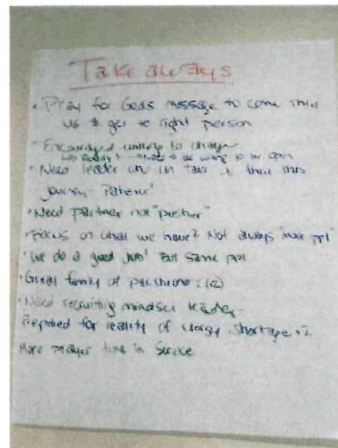 Take aways
• Pray for Gods message to come thru
us & get to right person
• Encouraged willing to change
• Need leader
journey - Patience
• Need partner not "pusher"
• Focus on what we have? Not always "more ppl"
• We do a good job! But same ppl
• Great family of parishioners (2)
• Need recruiting mindset leader
Prepared for reality of clergy shortage • 2
More prayer time in Service